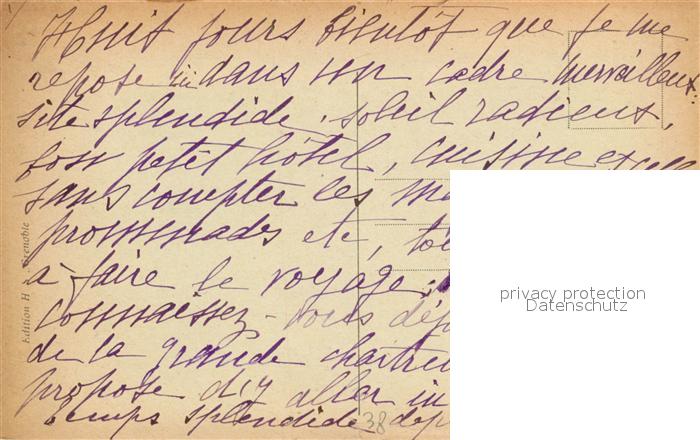 Huit jours bientôt que je me
repose ici dans son cadre merveilleux.
site splendide, soleil radieux,
bon petit hôtel, cuisine
sans compter les
promenades etc,
à faire le voyage.
connaissez-vous
de la grande
propose d'y aller
temps splendide
38
Edition H Grenoble
privacy protection
Datenschutz